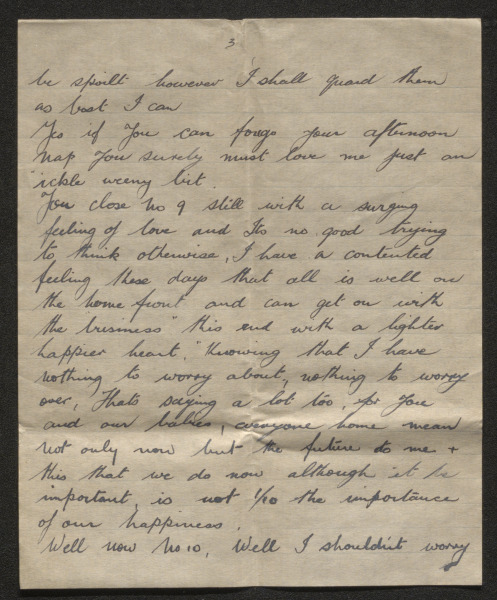 3
be spoilt however I shall guard them
as best I can
Yes if you can forgo your afternoon
nap you surely must love me just an
"ickle weeny bit.
You close No 9 still with a surging
feeling of love and Its no good trying
to think otherwise, I have a contented
feeling these days that all is well on
the home front and can get on with
the business" this end with a lighter
happier heart," Knowing that I have
nothing to worry about, nothing to worry
over, Thats saying a lot too, for You
and our babies, everyone home mean
not only now but the future to me +
this that we do now although it be
important, is not 1/10 the importance
of our happiness.
Well now No 10, Well I shouldn't worry